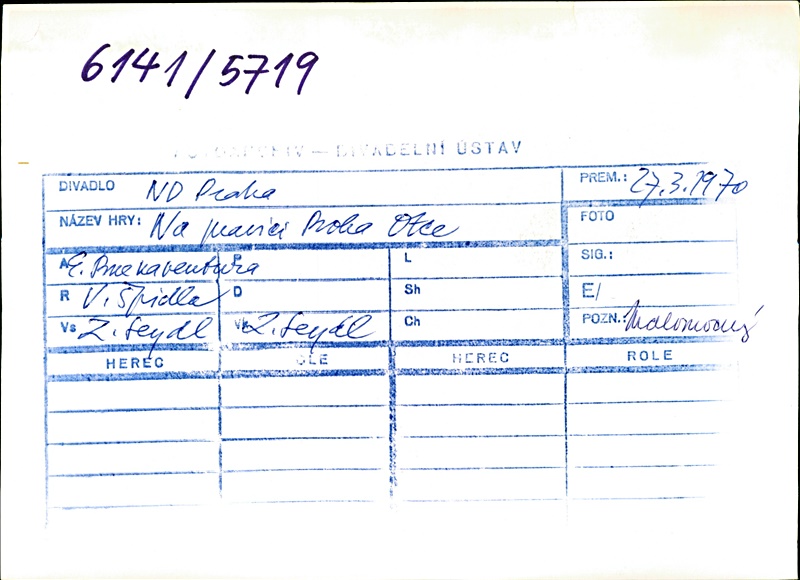 6141/5719
FOTOARCHIV — DIVADELNÍ ÚSTAV
DIVADLO ND Praha PREM.: 27.3.1970
NÁZEV HRY: Na pravici Boha Otce FOTO
A E. Buenaventura P L SIG.:
R V. Špidla D Sh E/
Vs Z. Seydl Vk Z. Seydl Ch POZN.:
HEREC ROLE HEREC ROLE